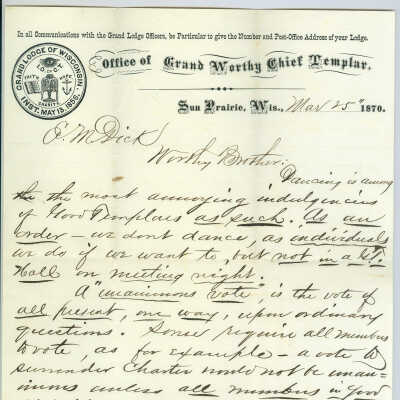 In all Communications with the Grand Lodge Officers, be Particular to give the Number and Post-Office Address of your Lodge.
GRAND LODGE OF WISCONSIN
I.O. OF G.T.
FAITH
HOPE
CHARITY
INST. MAY 15, 1856.
Office of Grand Worthy Chief Templar,
Sun Prairie, Wis., Mar 25" 1870.
F. M. Dick
Worthy Brother:
Dancing is among
the the most annoying indulgencies
of Good Templars as such. As an
order - we dont dance, as individuals
we do if we want to, but not in a G.T.
Hall on meeting night.
A "unanimous vote", is the vote of
all present, one way, upon ordinary
questions. Some require all members
to vote, as for example - a vote to
surrender Charter would not be unan-
imous unless all members in good